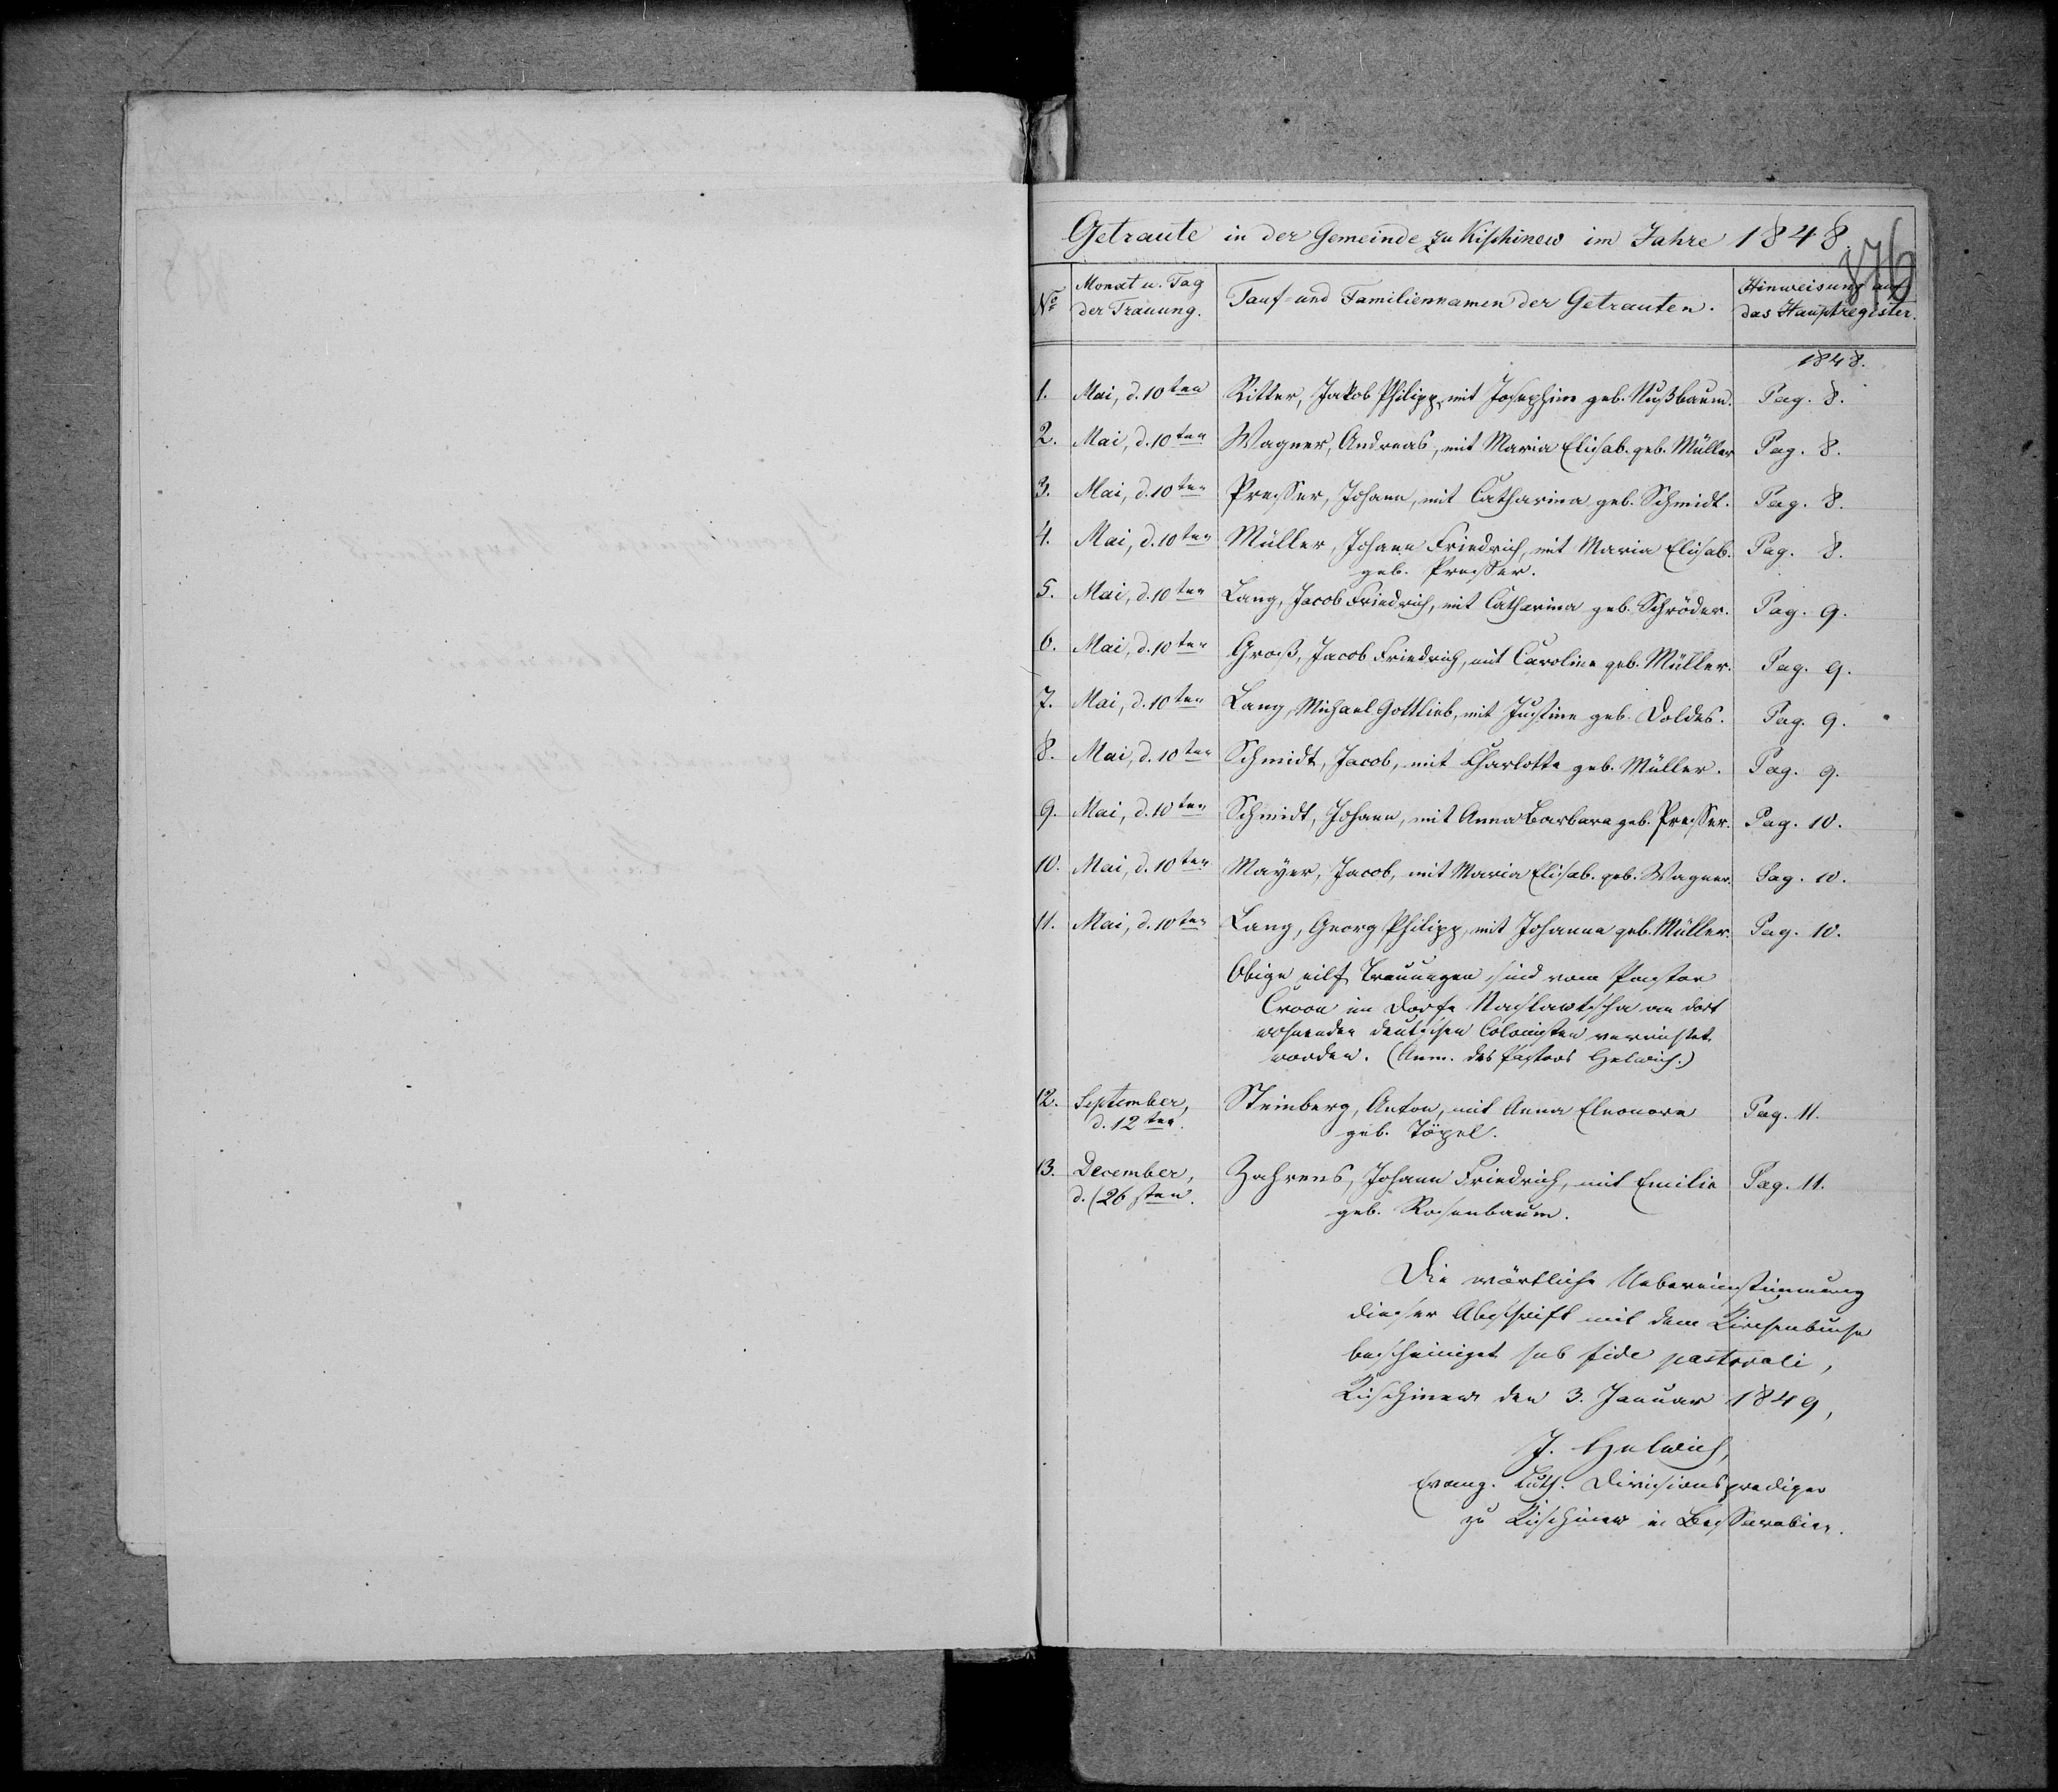 Getraute in der Gemeinde zu Kischinew im Jahre 1848.
876
No Monat u. Tag der Trauung. Tauf- und Familiennamen der Getrauten. Hinweisung auf das Hauptregister.
1848.
1. Mai, d. 10ten Ritter, Jakob Philipp, mit Josephine geb. Nußbaum. Pag. 8.
2. Mai, d. 10ten Wagner, Andreas, mit Maria Elisab. geb. Müller Pag. 8.
3. Mai, d. 10ten Presser, Johann, mit Catharina geb. Schmidt. Pag. 8.
4. Mai, d. 10ten Müller, Johann Friedrich, mit Maria Elisab. Pag. 8.
geb. Presser.
5. Mai, d. 10ten Lang, Jacob Friedrich, mit Catharina geb. Schröder. Pag. 9.
6. Mai, d. 10ten Groß, Jacob Friedrich, mit Caroline geb. Müller. Pag. 9.
7. Mai, d. 10ten Lang, Michael Gottlieb, mit Justine geb. Doldes. Pag. 9.
8. Mai, d. 10ten Schmidt, Jacob, mit Charlotte geb. Müller. Pag. 9.
9. Mai, d. 10ten Schmidt, Johann, mit Anna Barbara geb. Presser. Pag. 10.
10. Mai, d. 10ten Mayer, Jacob, mit Maria Elisab. geb. Wagner. Pag. 10.
11. Mai, d. 10ten Lang, Georg Philipp, mit Johanna geb. Müller. Pag. 10.
Obige eilf Trauungen sind vom Pastor
Croon im Dorfe Naslawtscha an dort
wohnenden deutschen Colonisten verrichtet
worden. (Anm. des Pastors Helwich.)
12. September, Steinberg, Anton, mit Anna Eleonora Pag. 11.
d. 12ten. geb. Töpel.
13. December, Zahrens, Johann Friedrich, mit Emilie Pag. 11.
d. 26sten. geb. Rosenbaum.
Die wörtliche Uebereinstimmung
dieser Abschrift mit dem Kirchenbuche
bescheiniget sub fide pastorali,
Kischinew den 3. Januar 1849,
J. Helwich,
Evang. Luth. Divisionsprediger
zu Kischinew in Bessarabien.